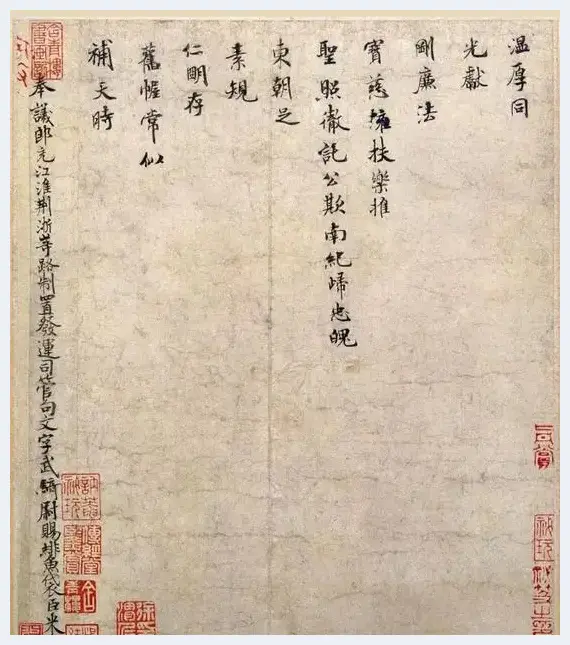 温厚同
光獻
剛廉法
寶慈擁扶樂推
聖照徹託公欺南紀歸忠魄
東朝足
素規
仁明存
舊幄常似
補天時
奉議郎充江淮荆浙等路制置發運司管句文字武騎尉賜緋魚袋臣米